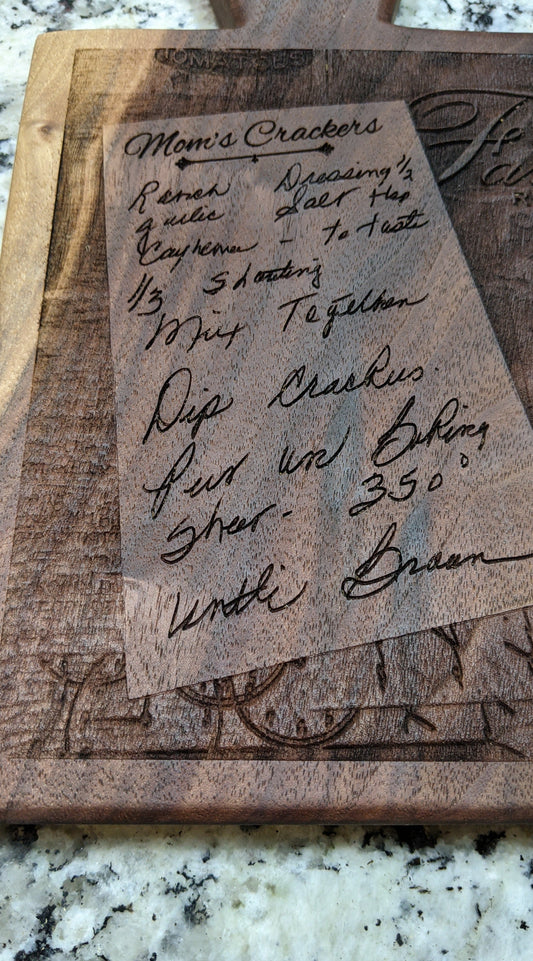 TOMATOES
Mom's Crackers
Ranch Dressing 1/2
garlic Salt
Cayhenne - to taste
1/3 Shorting
Mix Together
Dip Crackus.
Put un Baking
Sheet - 350°
until Brown